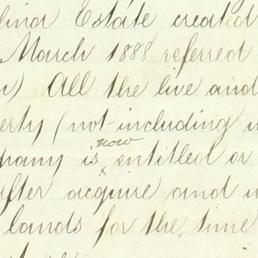 Estate created
March 1888 referred
All the live and
(not including
now
is entitled or
after acquire and
lands for the time